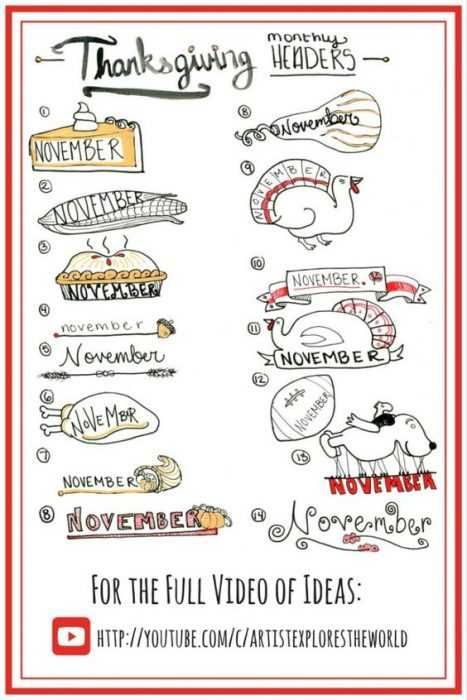 Thanksgiving
monthly
HEADERS
1
NOVEMBER
2
NOVEMBER
3
NOVEMBER
4
november
5
November
6
NoVeMbR
7
NOVEMBER
8
NOVEMBER
8
November
9
NOVEMBER
10
NOVEMBER.
11
NOVEMBER
12
NOVEMBER
13
NOVEMBER
14
November
FOR THE FULL VIDEO OF IDEAS:
HTTP://YOUTUBE.COM/C/ARTISTEXPLORESTHEWORLD